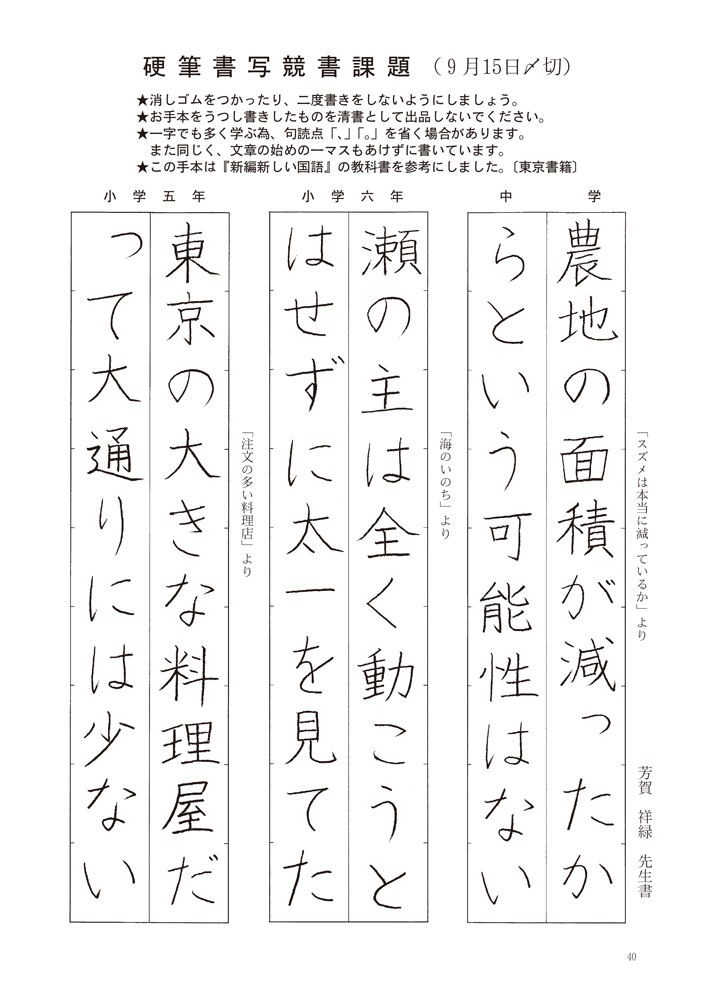 硬筆書写競書課題（9月15日〆切）
★消しゴムをつかったり、二度書きをしないようにしましょう。
★お手本をうつし書きしたものを清書として出品しないでください。
★一字でも多く学ぶ為、句読点「、」「。」を省く場合があります。
また同じく、文章の始めの一マスもあけずに書いています。
★この手本は『新編新しい国語』の教科書を参考にしました。〔東京書籍〕
中学
「スズメは本当に減っているか」より
農地の面積が減ったか
らという可能性はない
芳賀 祥緑 先生書
小学六年
「海のいのち」より
瀬の主は全く動こうと
はせずに太一を見てた
小学五年
「注文の多い料理店」より
東京の大きな料理屋だ
って大通りには少ない
40